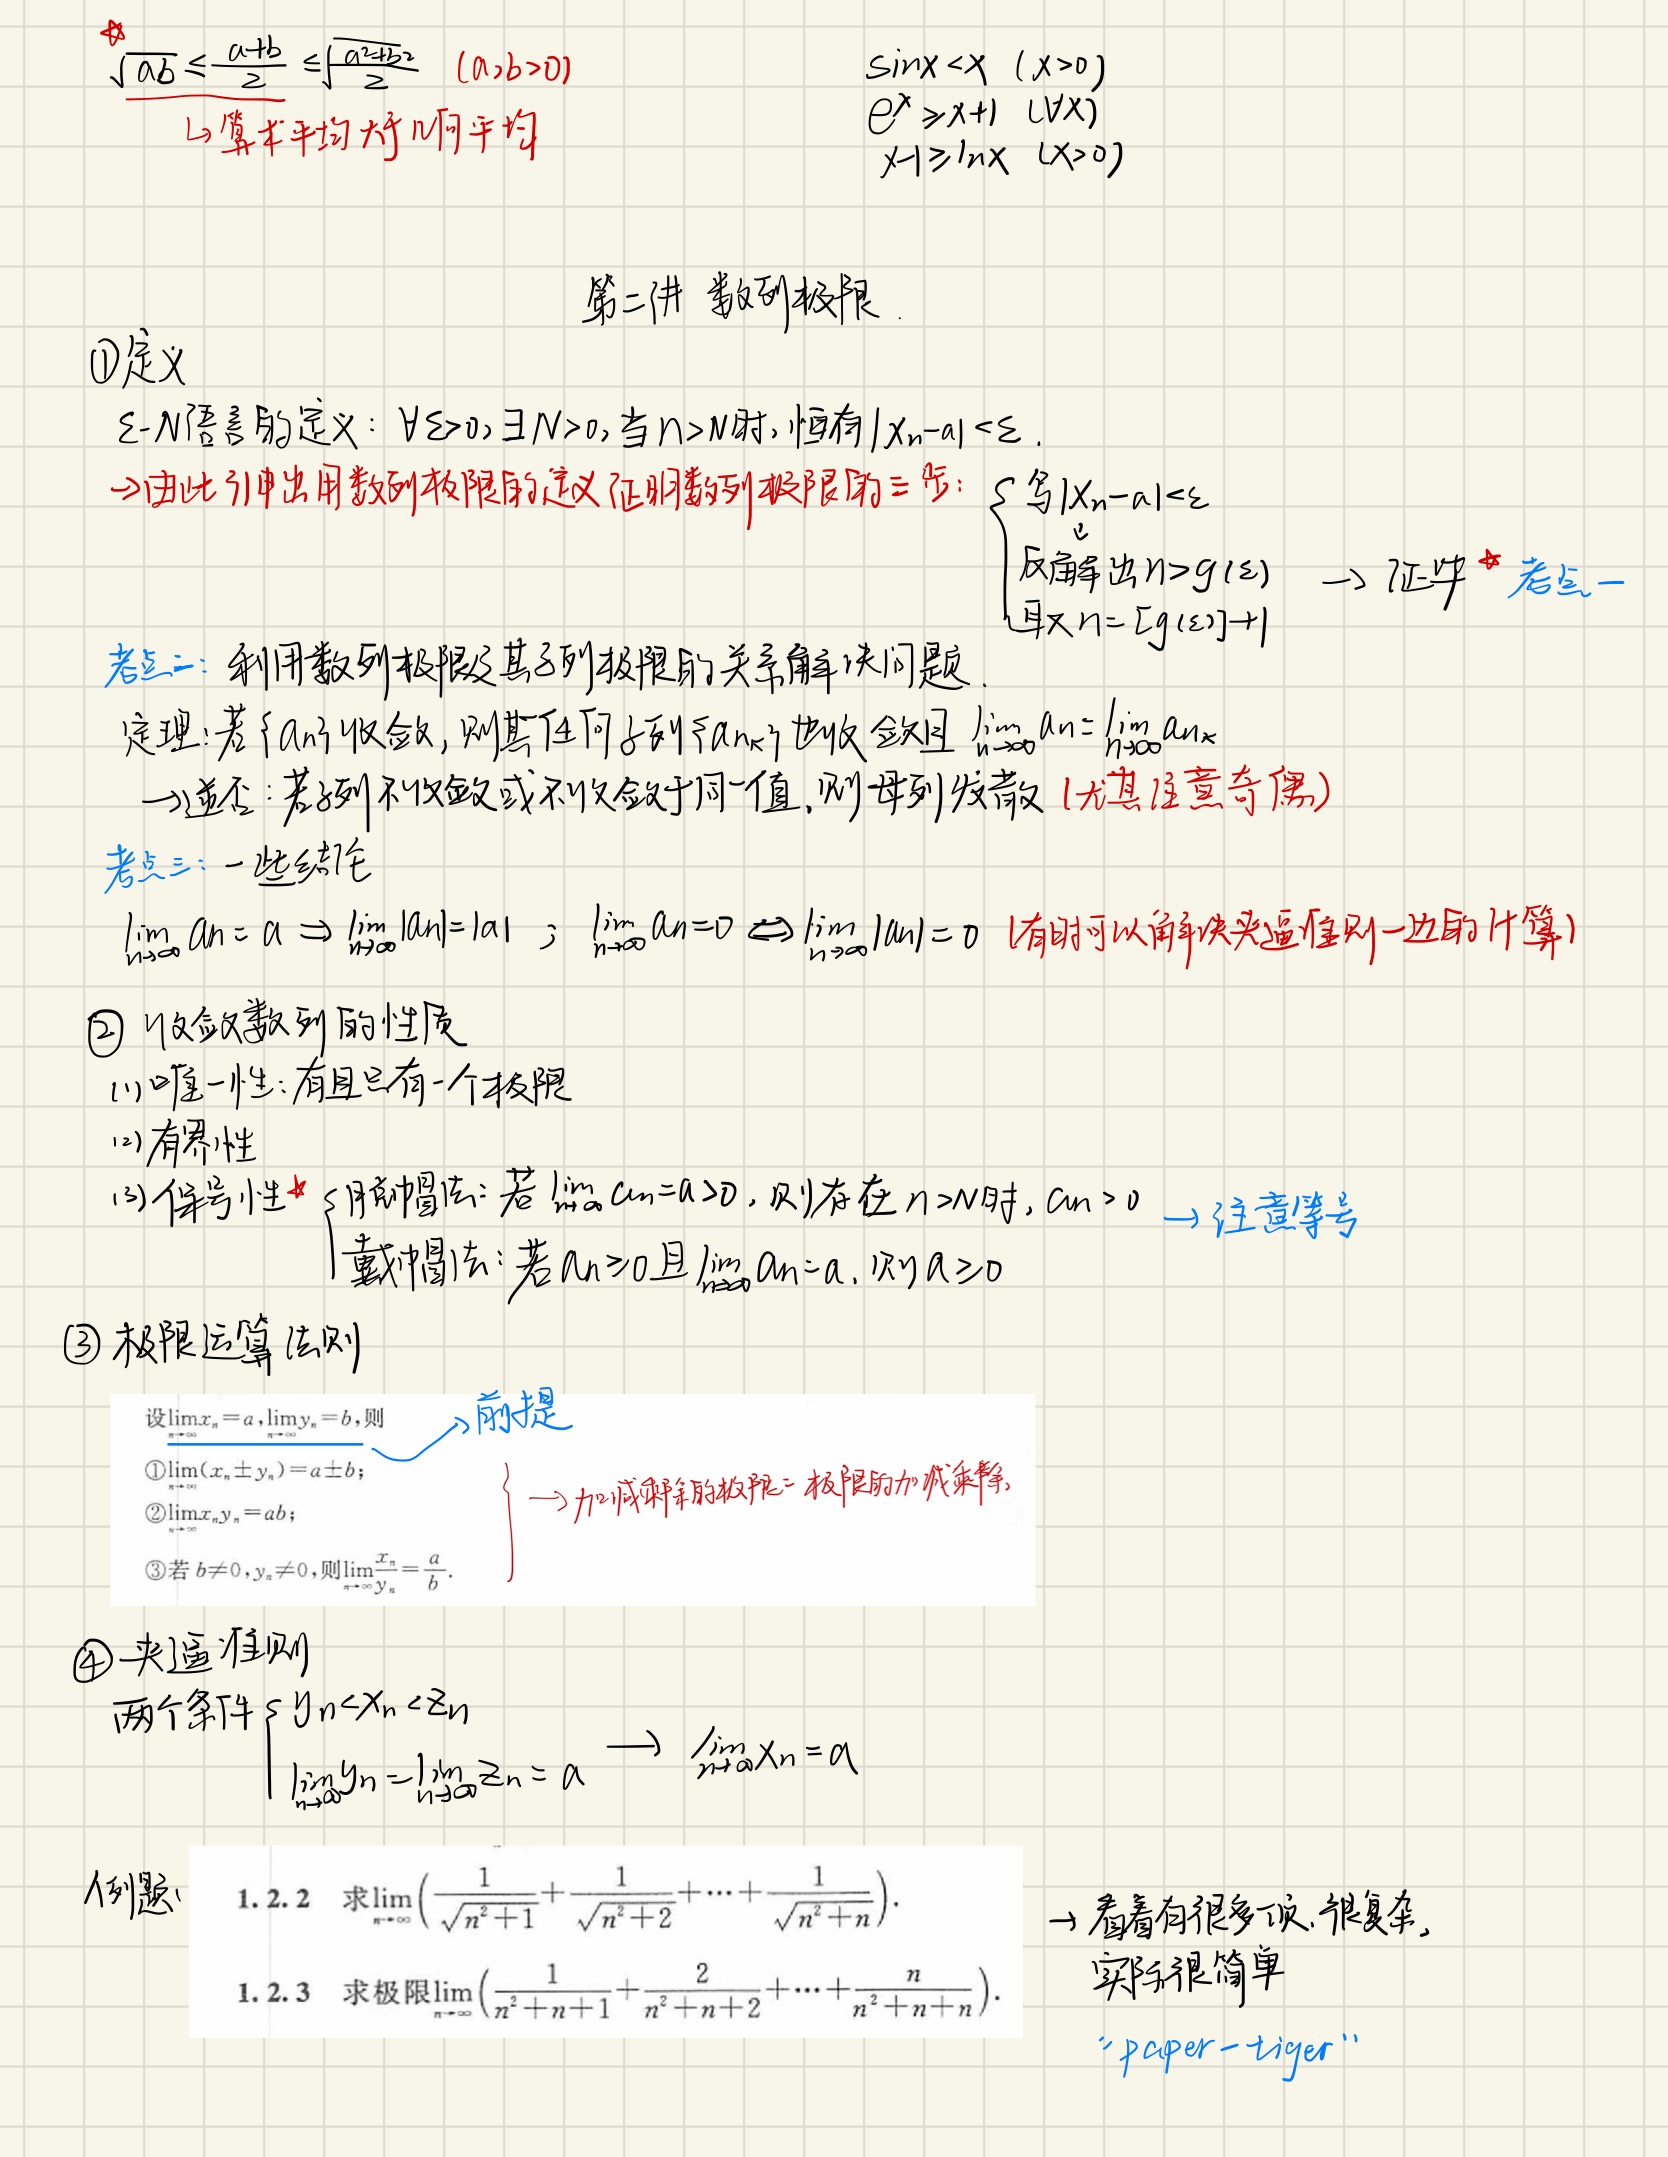 √ab ≤ (a+b)/2 ≤ √((a²+b²)/2) (a,b>0)
↳ 算术平均大于几何平均
sinx<x (x>0)
eˣ≥x+1 (∀x)
x-1≥lnx (x>0)
第二讲 数列极限.
①定义
ε-N语言的定义: ∀ε>0,∃N>0,当n>N时,恒有|xₙ-a|<ε.
→由此引申出用数列极限的定义证明数列极限的三步:
写|xₙ-a|<ε
↓
反解出n>g(ε)
取n=[g(ε)]+1
→ 证毕 考点一
考点二: 利用数列极限及其子列极限的关系解决问题.
定理:若{aₙ}收敛,则其任何子列{aₙₖ}也收敛且 lim(n→∞) aₙ = lim(n→∞) aₙₖ
→逆否:若子列不收敛或不收敛于同一值,则母列发散 (尤其注意奇偶)
考点三: 一些结论
lim(n→∞) aₙ = a ⇒ lim(n→∞) |aₙ|=|a| ; lim(n→∞) aₙ=0 ⇔ lim(n→∞) |aₙ|=0 (有时可以解决夹逼准则一边的计算)
② 收敛数列的性质
(1)唯一性:有且只有一个极限
(2)有界性
(3)保号性
脱帽法: 若 lim(n→∞) aₙ=a>0,则存在n>N时,aₙ>0 → 注意等号
戴帽法: 若aₙ≥0且lim(n→∞) aₙ=a,则a≥0
③ 极限运算法则
设lim(n→∞) xₙ=a,lim(n→∞) yₙ=b,则 → 前提
①lim(n→∞) (xₙ±yₙ)=a±b;
②lim(n→∞) xₙyₙ=ab;
→ 加减乘除的极限=极限的加减乘除
③若 b≠0,yₙ≠0,则lim(n→∞) xₙ/yₙ = a/b.
④夹逼准则
两个条件
yₙ<xₙ<zₙ
lim(n→∞) yₙ=lim(n→∞) zₙ=a → lim(n→∞) xₙ=a
例题:
1.2.2 求lim(n→∞) (1/√(n²+1) + 1/√(n²+2) + ⋯ + 1/√(n²+n)).
1.2.3 求极限lim(n→∞) (1/(n²+n+1) + 2/(n²+n+2) + ⋯ + n/(n²+n+n)).
→ 看着有很多项,很复杂,
实际很简单
"paper-tiger"